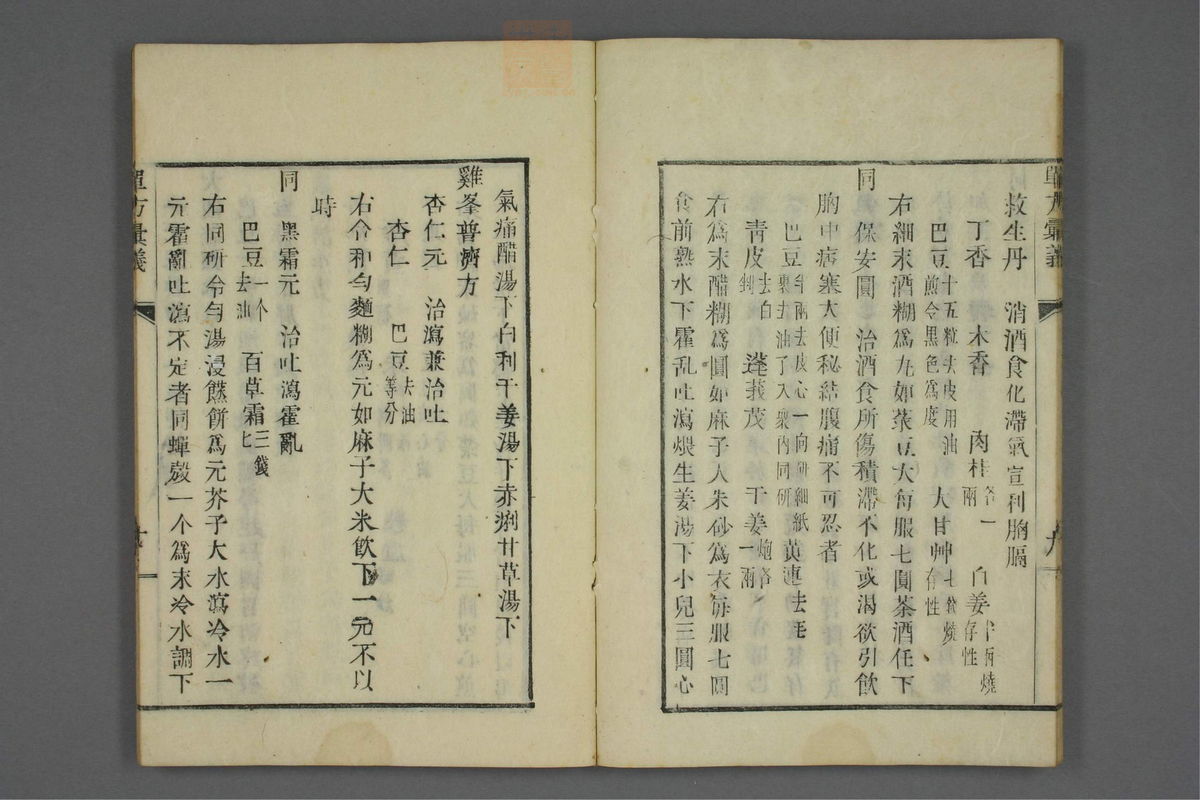 救生丹　消酒食化滯氣宣利胸膈
丁香　木香　肉桂各一兩　白姜半兩燒存性
巴豆十五粒去皮用油煎令黑色爲度　大甘艸七箇燒存性
右細末酒糊爲丸如菉豆大每服七圓茶酒任下
同　保安圓　治酒食所傷積滯不化或渴欲引飲
胸中痞塞大便秘結腹痛不可忍者
巴豆半兩去皮心一向研細紙裹去油了入衆內同研　黃連去毛
青皮去白剉　蓬莪茂　干姜炮各一兩
右爲末醋糊爲圓如麻子大朱砂爲衣每服七圓
食前熟水下霍乱吐瀉煨生姜湯下小兒三圓心
單方彙義
九
氣痛醋湯下白利干姜湯下赤痢甘草湯下
雞峯普濟方
杏仁元　治瀉兼治吐
杏仁　巴豆去油等分
右合和勻麵糊爲元如麻子大米飲下一元不以
時
同　黑霜元　治吐瀉霍亂
巴豆一个去油　百草霜三錢匕
右同研令勻湯浸蒸餠爲元芥子大水瀉冷水一
元霍亂吐瀉不定者同蟬殼一个爲末冷水調下
單方彙義